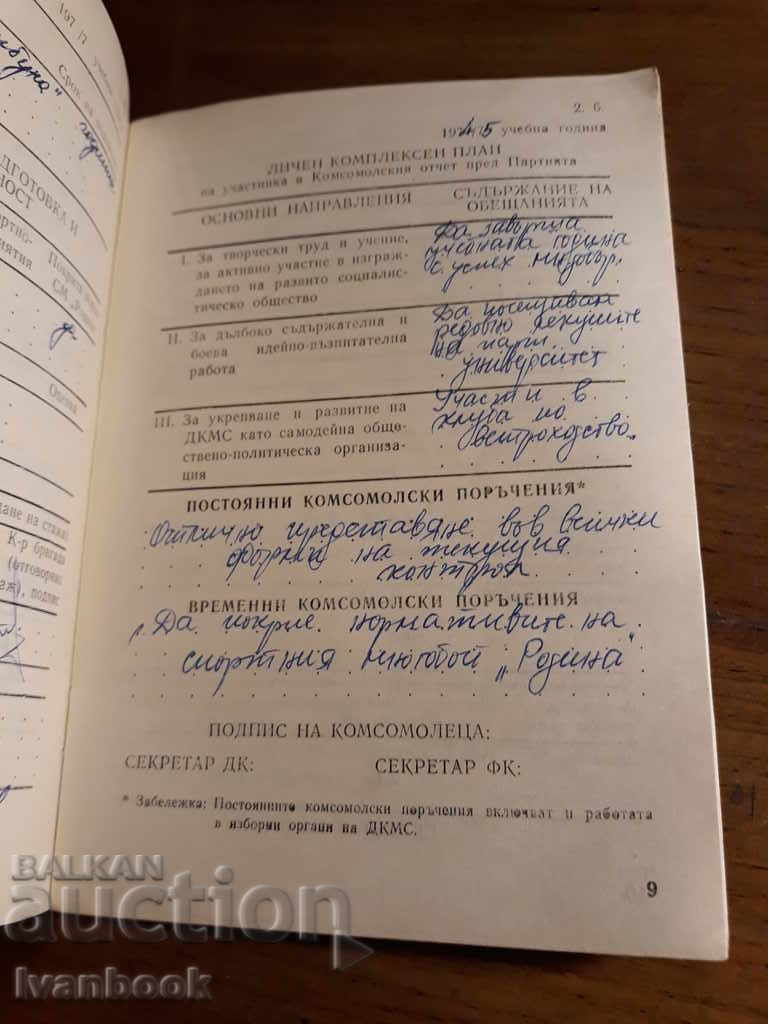 197 /7 учебн
Срок на
годишно
ДГОТОВКА И
НОСТ
ортно-
иятия
Оценка
ане на стажа
К-р бригада
(отговорен
подпис
2. 6.
197 /75 учебна година
ЛИЧЕН КОМПЛЕКСЕН ПЛАН
на участника в Комсомолския отчет пред Партията
ОСНОВНИ НАПРАВЛЕНИЯ
СЪДЪРЖАНИЕ НА
ОБЕЩАНИЯТА
I. За творчески труд и учение,
за активно участие в изграж-
дането на развито социалис-
тическо общество
Да завърша
учебната година
с успех мн.добър.
II. За дълбоко съдържателна и
боева идейно-възпитателна
работа
Да посещавам
редовно лекциите
на парт.
университет
III. За укрепване и развитие на
ДКМС като самодейна общес-
ствено-политическа организа-
ция
Участ и в
кръга по
ветроходство
ПОСТОЯННИ КОМСОМОЛСКИ ПОРЪЧЕНИЯ*
Отлично представяне във всички
форми на текущия
контрол
ВРЕМЕННИ КОМСОМОЛСКИ ПОРЪЧЕНИЯ
Да покрие нормативите на
спортния многобой „Родина"
ПОДПИС НА КОМСОМОЛЕЦА:
СЕКРЕТАР ДК: СЕКРЕТАР ФК:
* Забележка: Постоянните комсомолски поръчения включват и работата
в изборни органи на ДКМС.
9
BALKAN
auction
Ivanbook